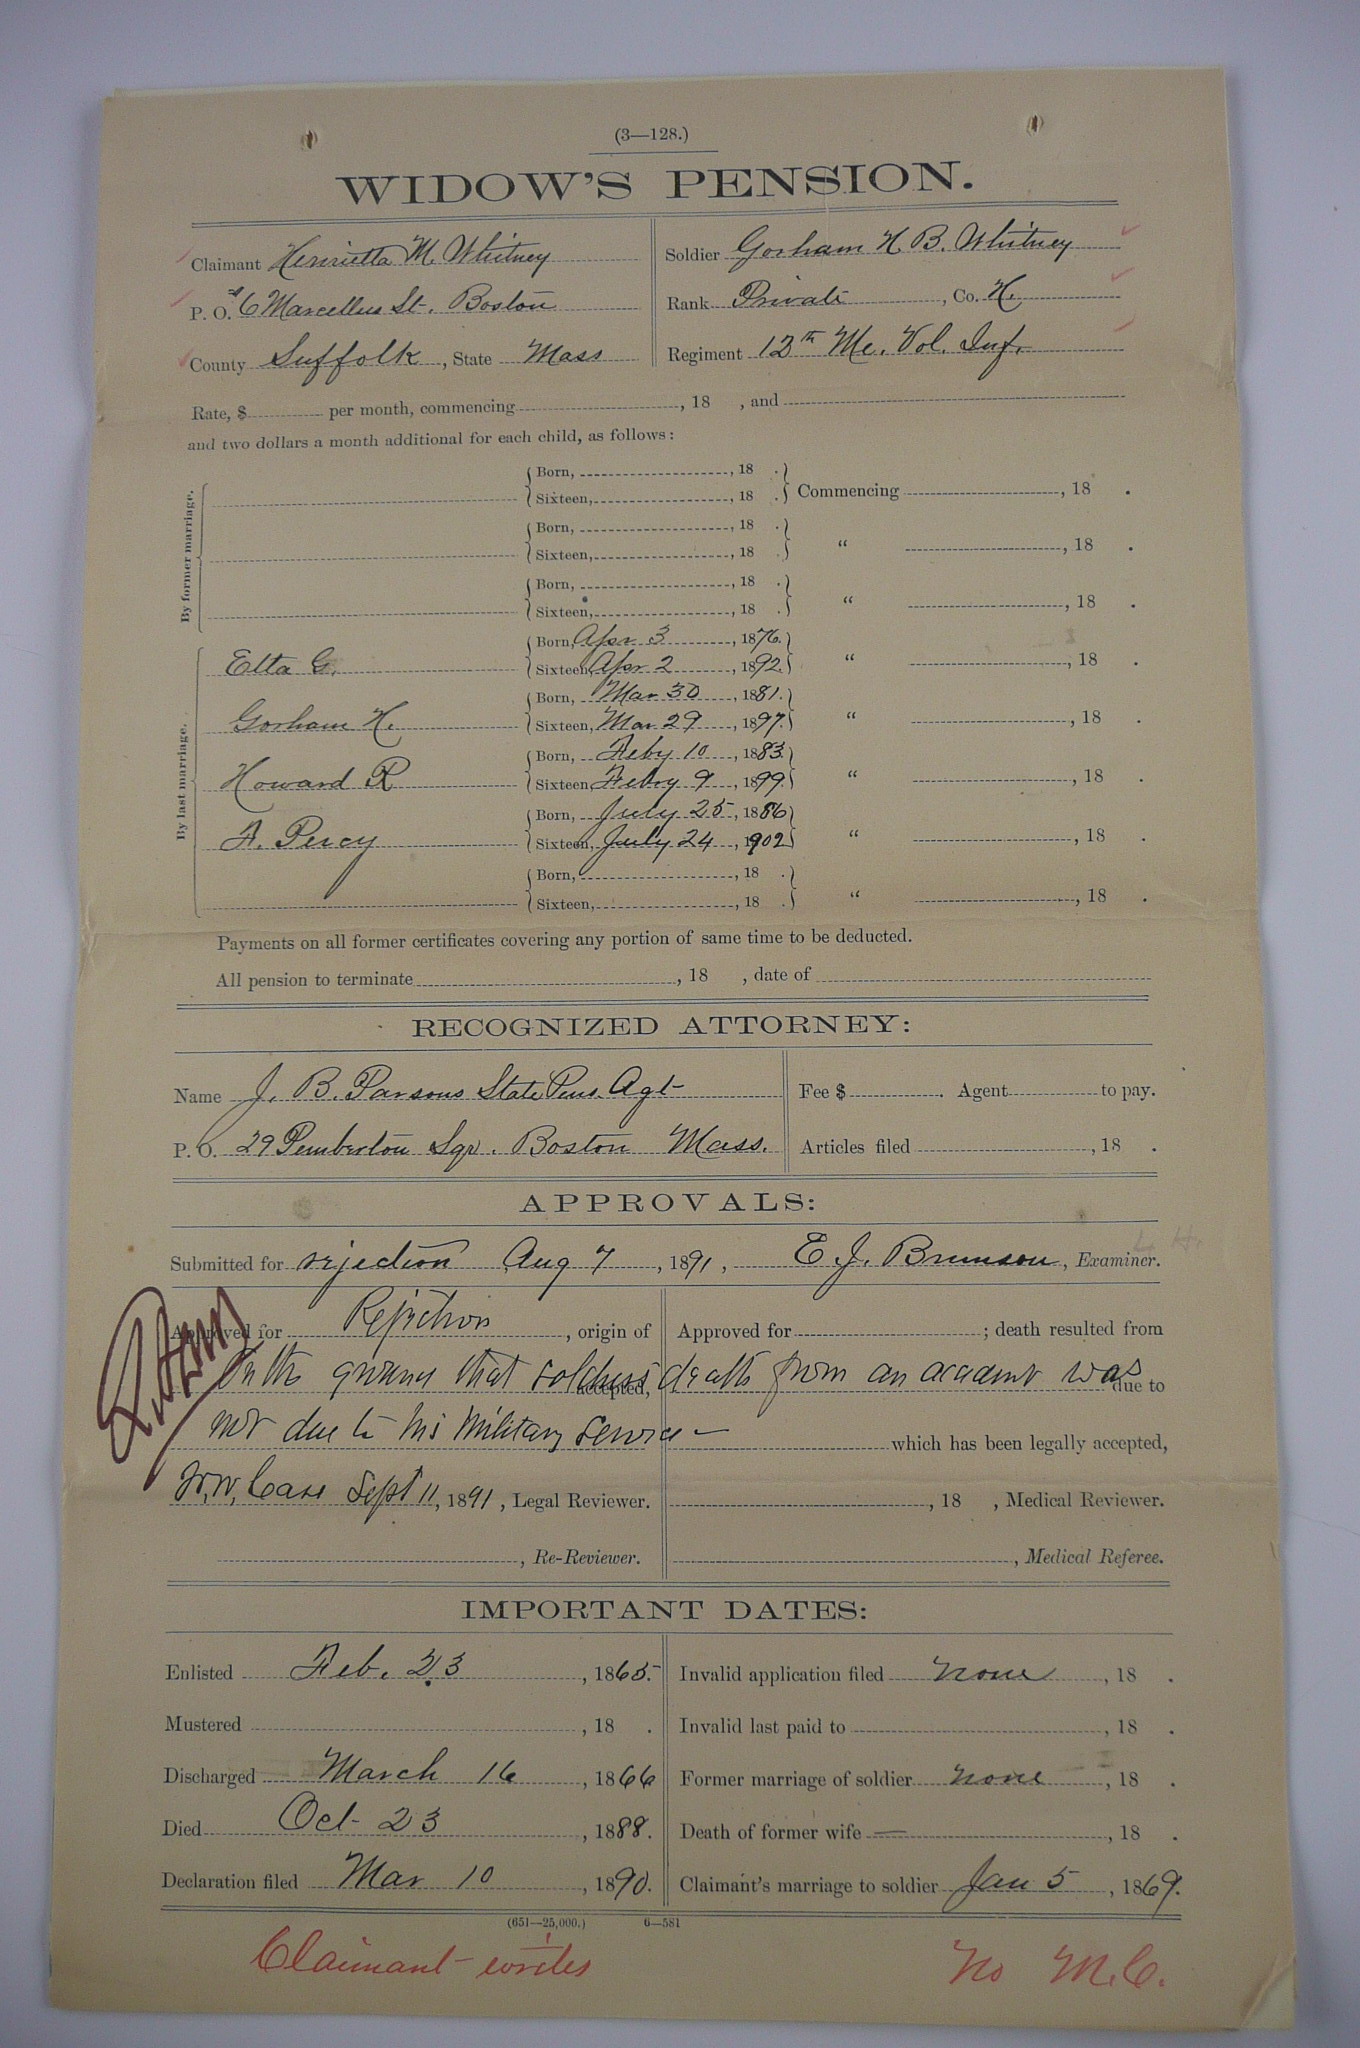 (3—128.)
WIDOW'S PENSION.
Claimant Henrietta M. Whitney
P. O. 6 Marcellus St. Boston
County Suffolk, State Mass
Soldier Gorham H. B. Whitney
Rank Private, Co. H.
Regiment 12th Me. Vol. Inf.
Rate, $ per month, commencing , 18 , and
and two dollars a month additional for each child, as follows:
By former marriage.
Born, , 18 .
Sixteen, , 18 . Commencing , 18 .
Born, , 18 .
Sixteen, , 18 . " , 18 .
Born, , 18 .
Sixteen, , 18 . " , 18 .
By last marriage.
Etta G. Born, Apr 3, 1876.
Sixteen, Apr 2, 1892. " , 18 .
Gorham H. Born, Mar 30, 1881.
Sixteen, Mar 29, 1897. " , 18 .
Howard R Born, Feby 10, 1883.
Sixteen, Feby 9, 1899. " , 18 .
A. Percy Born, July 25, 1886
Sixteen, July 24, 1902 " , 18 .
Born, , 18 .
Sixteen, , 18 . " , 18 .
Payments on all former certificates covering any portion of same time to be deducted.
All pension to terminate , 18 , date of
RECOGNIZED ATTORNEY:
Name J. B. Parsons State Pens. Agt
P. O. 29 Pemberton Sqr. Boston Mass.
Fee $ . Agent to pay.
Articles filed , 18 .
APPROVALS:
Submitted for rejection Aug 7, 1891, E. J. Brunson, Examiner.
Approved for Rejection, origin of
Approved for ; death resulted from
On the ground that soldiers death from an accident was
accepted, due to
not due to his military service —
which has been legally accepted,
W. W. Case Sept 11, 1891, Legal Reviewer.
, 18 , Medical Reviewer.
, Re-Reviewer.
, Medical Referee.
IMPORTANT DATES:
Enlisted Feb. 23, 1865.
Mustered , 18 .
Discharged March 16, 1866
Died Oct 23, 1888.
Declaration filed Mar 10, 1890.
Invalid application filed none, 18 .
Invalid last paid to , 18 .
Former marriage of soldier none, 18 .
Death of former wife — , 18 .
Claimant's marriage to soldier Jan 5, 1869.
(651—25,000.) 6—581
Claimant writes
No M.C.